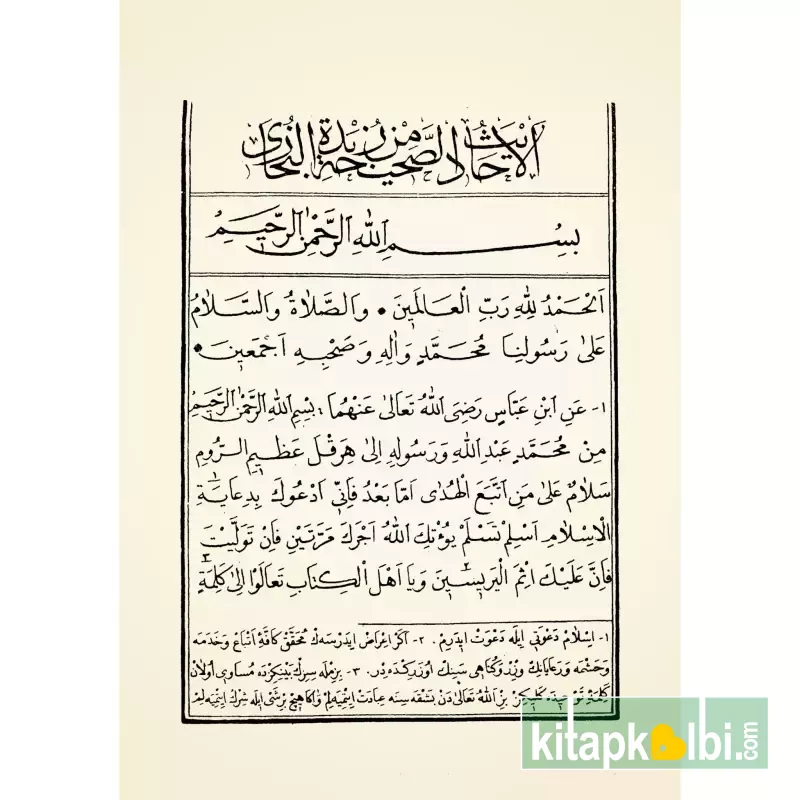 الأحاديث الصحيحة من زبدة البخاري
بِسْمِ اللهِ الرَّحْمٰنِ الرَّحِيمِ
اَلْحَمْدُ لِلّٰهِ رَبِّ الْعَالَمِينَ • وَالصَّلَاةُ وَالسَّلَامُ
عَلٰى رَسُولِنَا مُحَمَّدٍ وَاٰلِهِ وَصَحْبِهِ اَجْمَعِينَ •
١- عَنِ ابْنِ عَبَّاسٍ رَضِىَ اللهُ تَعَالٰى عَنْهُمَا : بِسْمِ اللهِ الرَّحْمٰنِ الرَّحِيمِ
مِنْ مُحَمَّدٍ عَبْدِ اللهِ وَرَسُولِهِ اِلٰى هِرَقْلَ عَظِيمِ الرُّومِ
سَلَامٌ عَلٰى مَنِ اتَّبَعَ الْهُدٰى اَمَّا بَعْدُ فَاِنِّى اَدْعُوكَ بِدِعَايَةِ
الْاِسْلَامِ اَسْلِمْ تَسْلَمْ يُؤْتِكَ اللهُ اَجْرَكَ مَرَّتَيْنِ فَاِنْ تَوَلَّيْتَ
فَاِنَّ عَلَيْكَ اِثْمَ الْيَرِيسِينَ وَيَا اَهْلَ الْكِتَابِ تَعَالَوْا اِلٰى كَلِمَةٍ
١- اسلام دعوتى ايله دعوت ايدرم . ٢- اكر اعراض ايدرسه ك محقق كافۀ اتباع وخدمه
وحشمه ورعايانك وزر وكناهى سينك اوزركده در . ٣- بزمله سزك بينكزده مساوى اولان
كلمۀ توحيده كليكز بز الله تعالى دن بشقه سنه عبادت ايتميه لم واكا هيچ بر شئى ايله شرك ايتميه لم
kitapkalbi.com